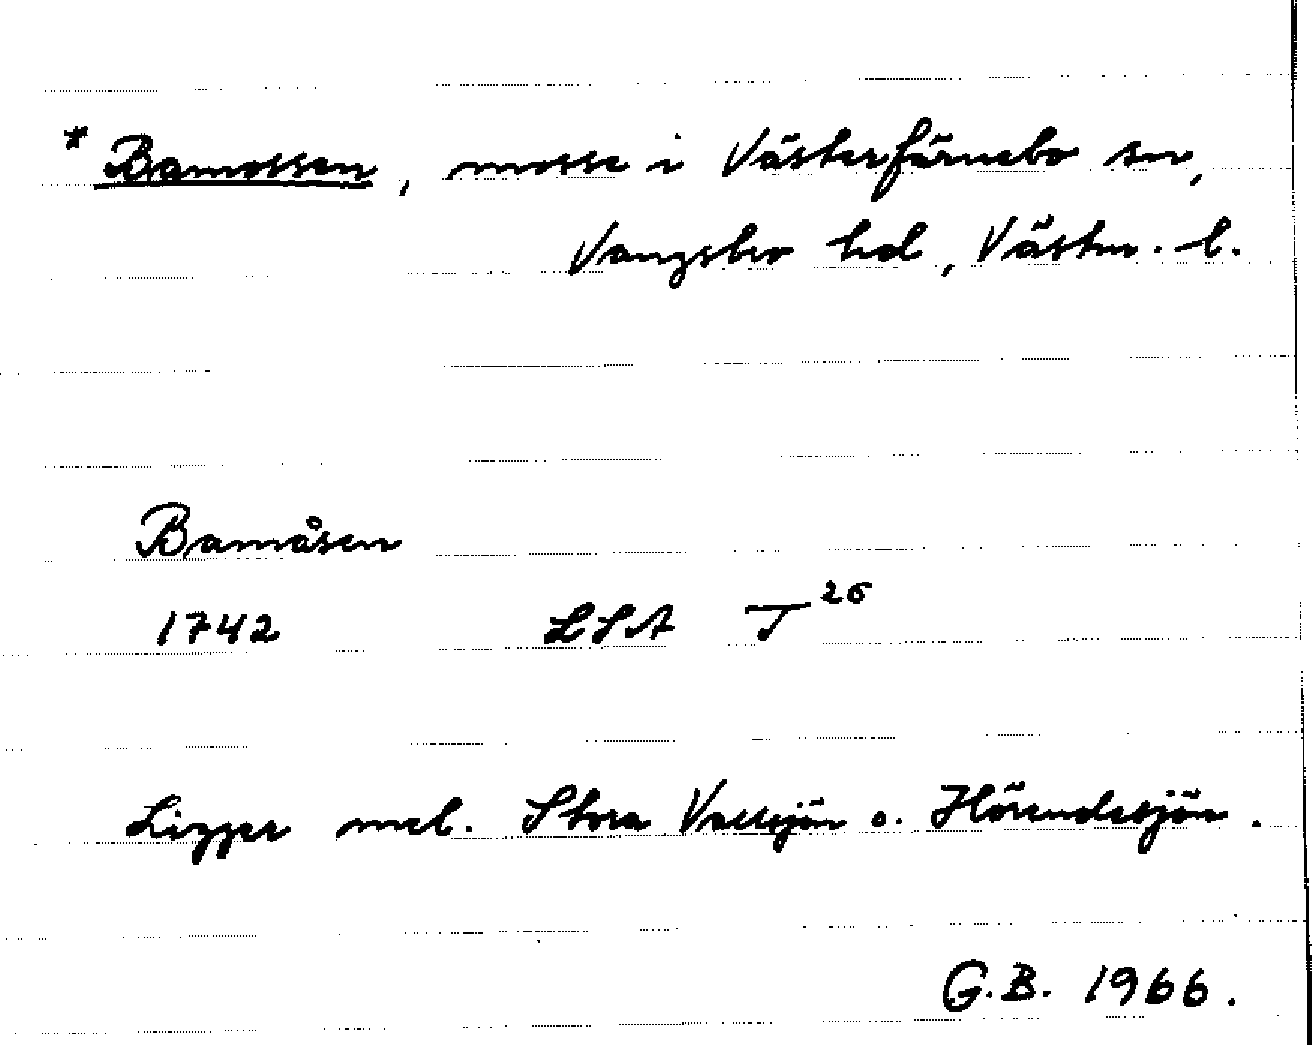 * Bamossen, mosse i Västerfärnebo sn,
Vangsbro hd, Västm. l.
Bamåsen
1742 LSA T 26
Ligger mel. Stora Vallsjön o. Hörendesjön.
G.B. 1966.